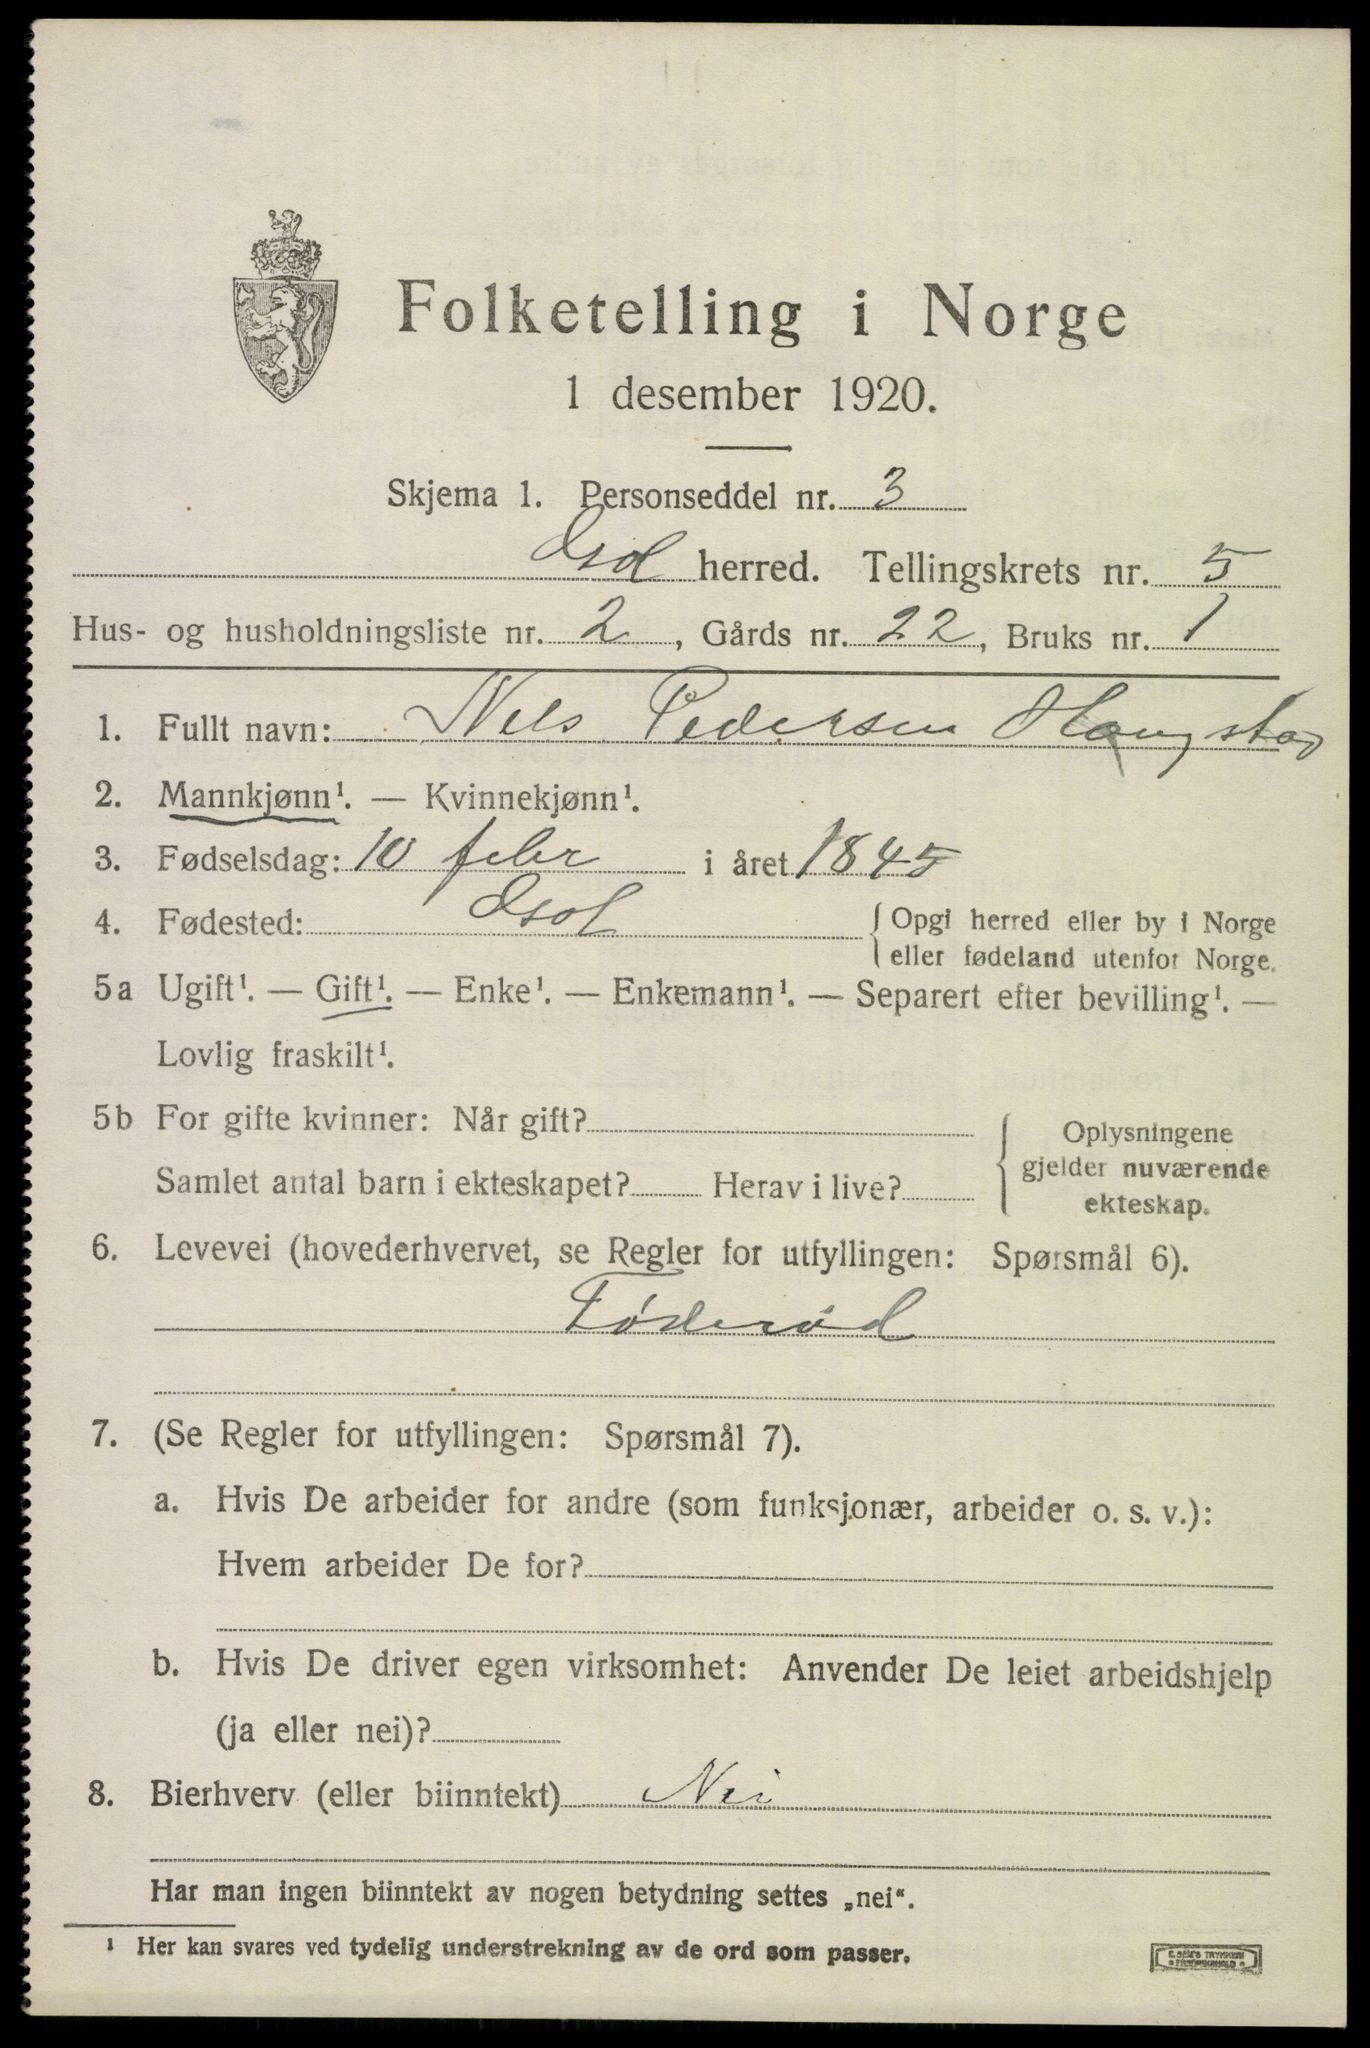 Folketelling i Norge
1 desember 1920.
Skjema 1. Personseddel nr. 3
herred. Tellingskrets nr. 5
Hus- og husholdningsliste nr. 2, Gårds nr. 22, Bruks nr. 1
1. Fullt navn: Nels Pedersen
2. Mannkjønn¹. — Kvinnekjønn¹.
3. Fødselsdag: 10 febr i året 1845
4. Fødested: {Opgi herred eller by i Norge
eller fødeland utenfor Norge.
5a Ugift¹. — Gift¹. — Enke¹. — Enkemann¹. — Separert efter bevilling¹. —
Lovlig fraskilt¹.
5b For gifte kvinner: Når gift?
Samlet antal barn i ekteskapet? Herav i live?
Oplysningene
gjelder nuværende
ekteskap.
6. Levevei (hovederhvervet, se Regler for utfyllingen: Spørsmål 6).
Føderåd
7. (Se Regler for utfyllingen: Spørsmål 7).
a. Hvis De arbeider for andre (som funksjonær, arbeider o. s. v.):
Hvem arbeider De for?
b. Hvis De driver egen virksomhet: Anvender De leiet arbeidshjelp
(ja eller nei)?
8. Bierhverv (eller biinntekt) Nei
Har man ingen biinntekt av nogen betydning settes „nei“.
¹ Her kan svares ved tydelig understrekning av de ord som passer.